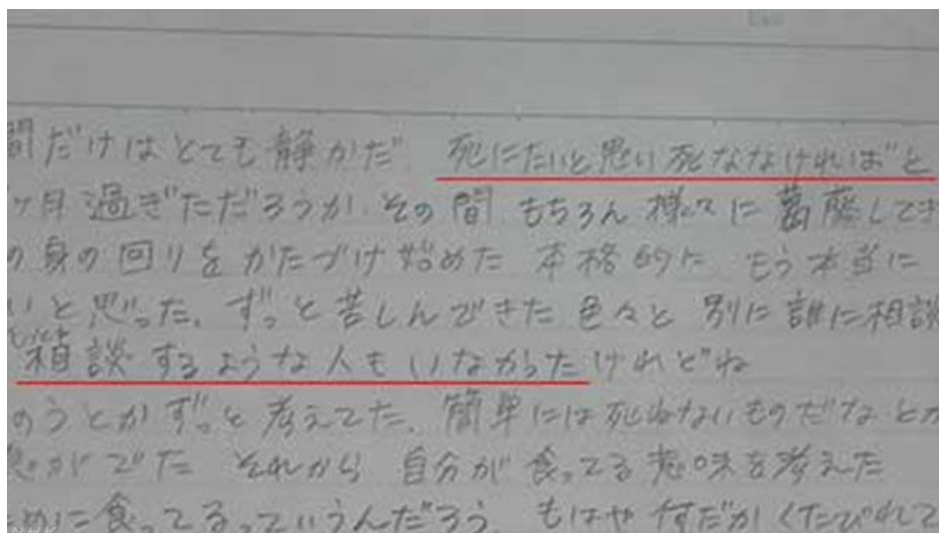 間だけはとても静かだ 死にたいと思い死ななければと
ヶ月過ぎただろうか その間 もちろん様々に葛藤してき
の身の回りをかたづけ始めた 本格的に もう本当に
いと思った、ずっと苦しんできた 色々と 別に誰に相談
相談するような人もいなかったけれどね
のうとかずっと考えてた、簡単には死ねないものだなとか
がでた それから 自分が食ってる意味を考えた
めに食ってるっていうんだろう、もはや何だかくたびれて
NHK